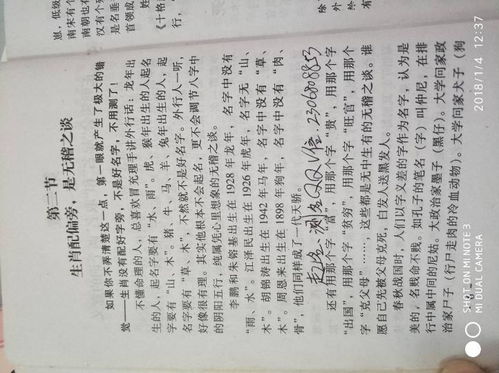 第二节
生肖配偏旁，是无稽之谈
如果你不弄清楚这一点，第一眼就产生了极大的错
觉——生肖没有配好字旁，不是好名字，不用测了！
不懂命理的人，总喜欢冒充理手讲外行话：龙年出
生的人，起名字要有“水、雨”。虎、猴年出生的人，起
字要有“山、木”。猪、牛、马、羊、兔年出生的人，起
名字要有“草、木”，不然就不是好名字。外行人一听，
好像很有理。其实他根本不会起名，更不会调节八字中
的阴阳五行，纯属凭心里想象的无稽之谈。
李鹏和朱镕基出生在1928年龙年，名字中没有
“雨、水”。江泽民出生在1926年虎年，名字无“山、
木”。胡锦涛出生在1942年马年，名字中没有“草、
木”。周恩来出生在1898年狗年，名字中没有“肉、
骨”，他们同样成了一代天骄。
QQ V信：2306808853
还有用那个字“富”，用那个字“贵”，用那个字
“出国”，用那个字“贫穷”，用那个字“旺官”，用那个
字“克父母”……，这些都是无中生有的无稽之谈。谁
愿自己先被父母克死，白发人送黑发人。
春秋战国时，人们以字义差的字作为名字，认为是
美的，名贱命不贱。如孔子的笔名（字）叫仲尼，在排
行中属中间的尼姑。大政治家墨子（黑仔）。大学问家政
治家尸子（行尸走肉的冷血动物）。大学问家犬子（狗
SHOT ON MI NOTE 3
MI DUAL CAMERA
2018/1/4 12:37